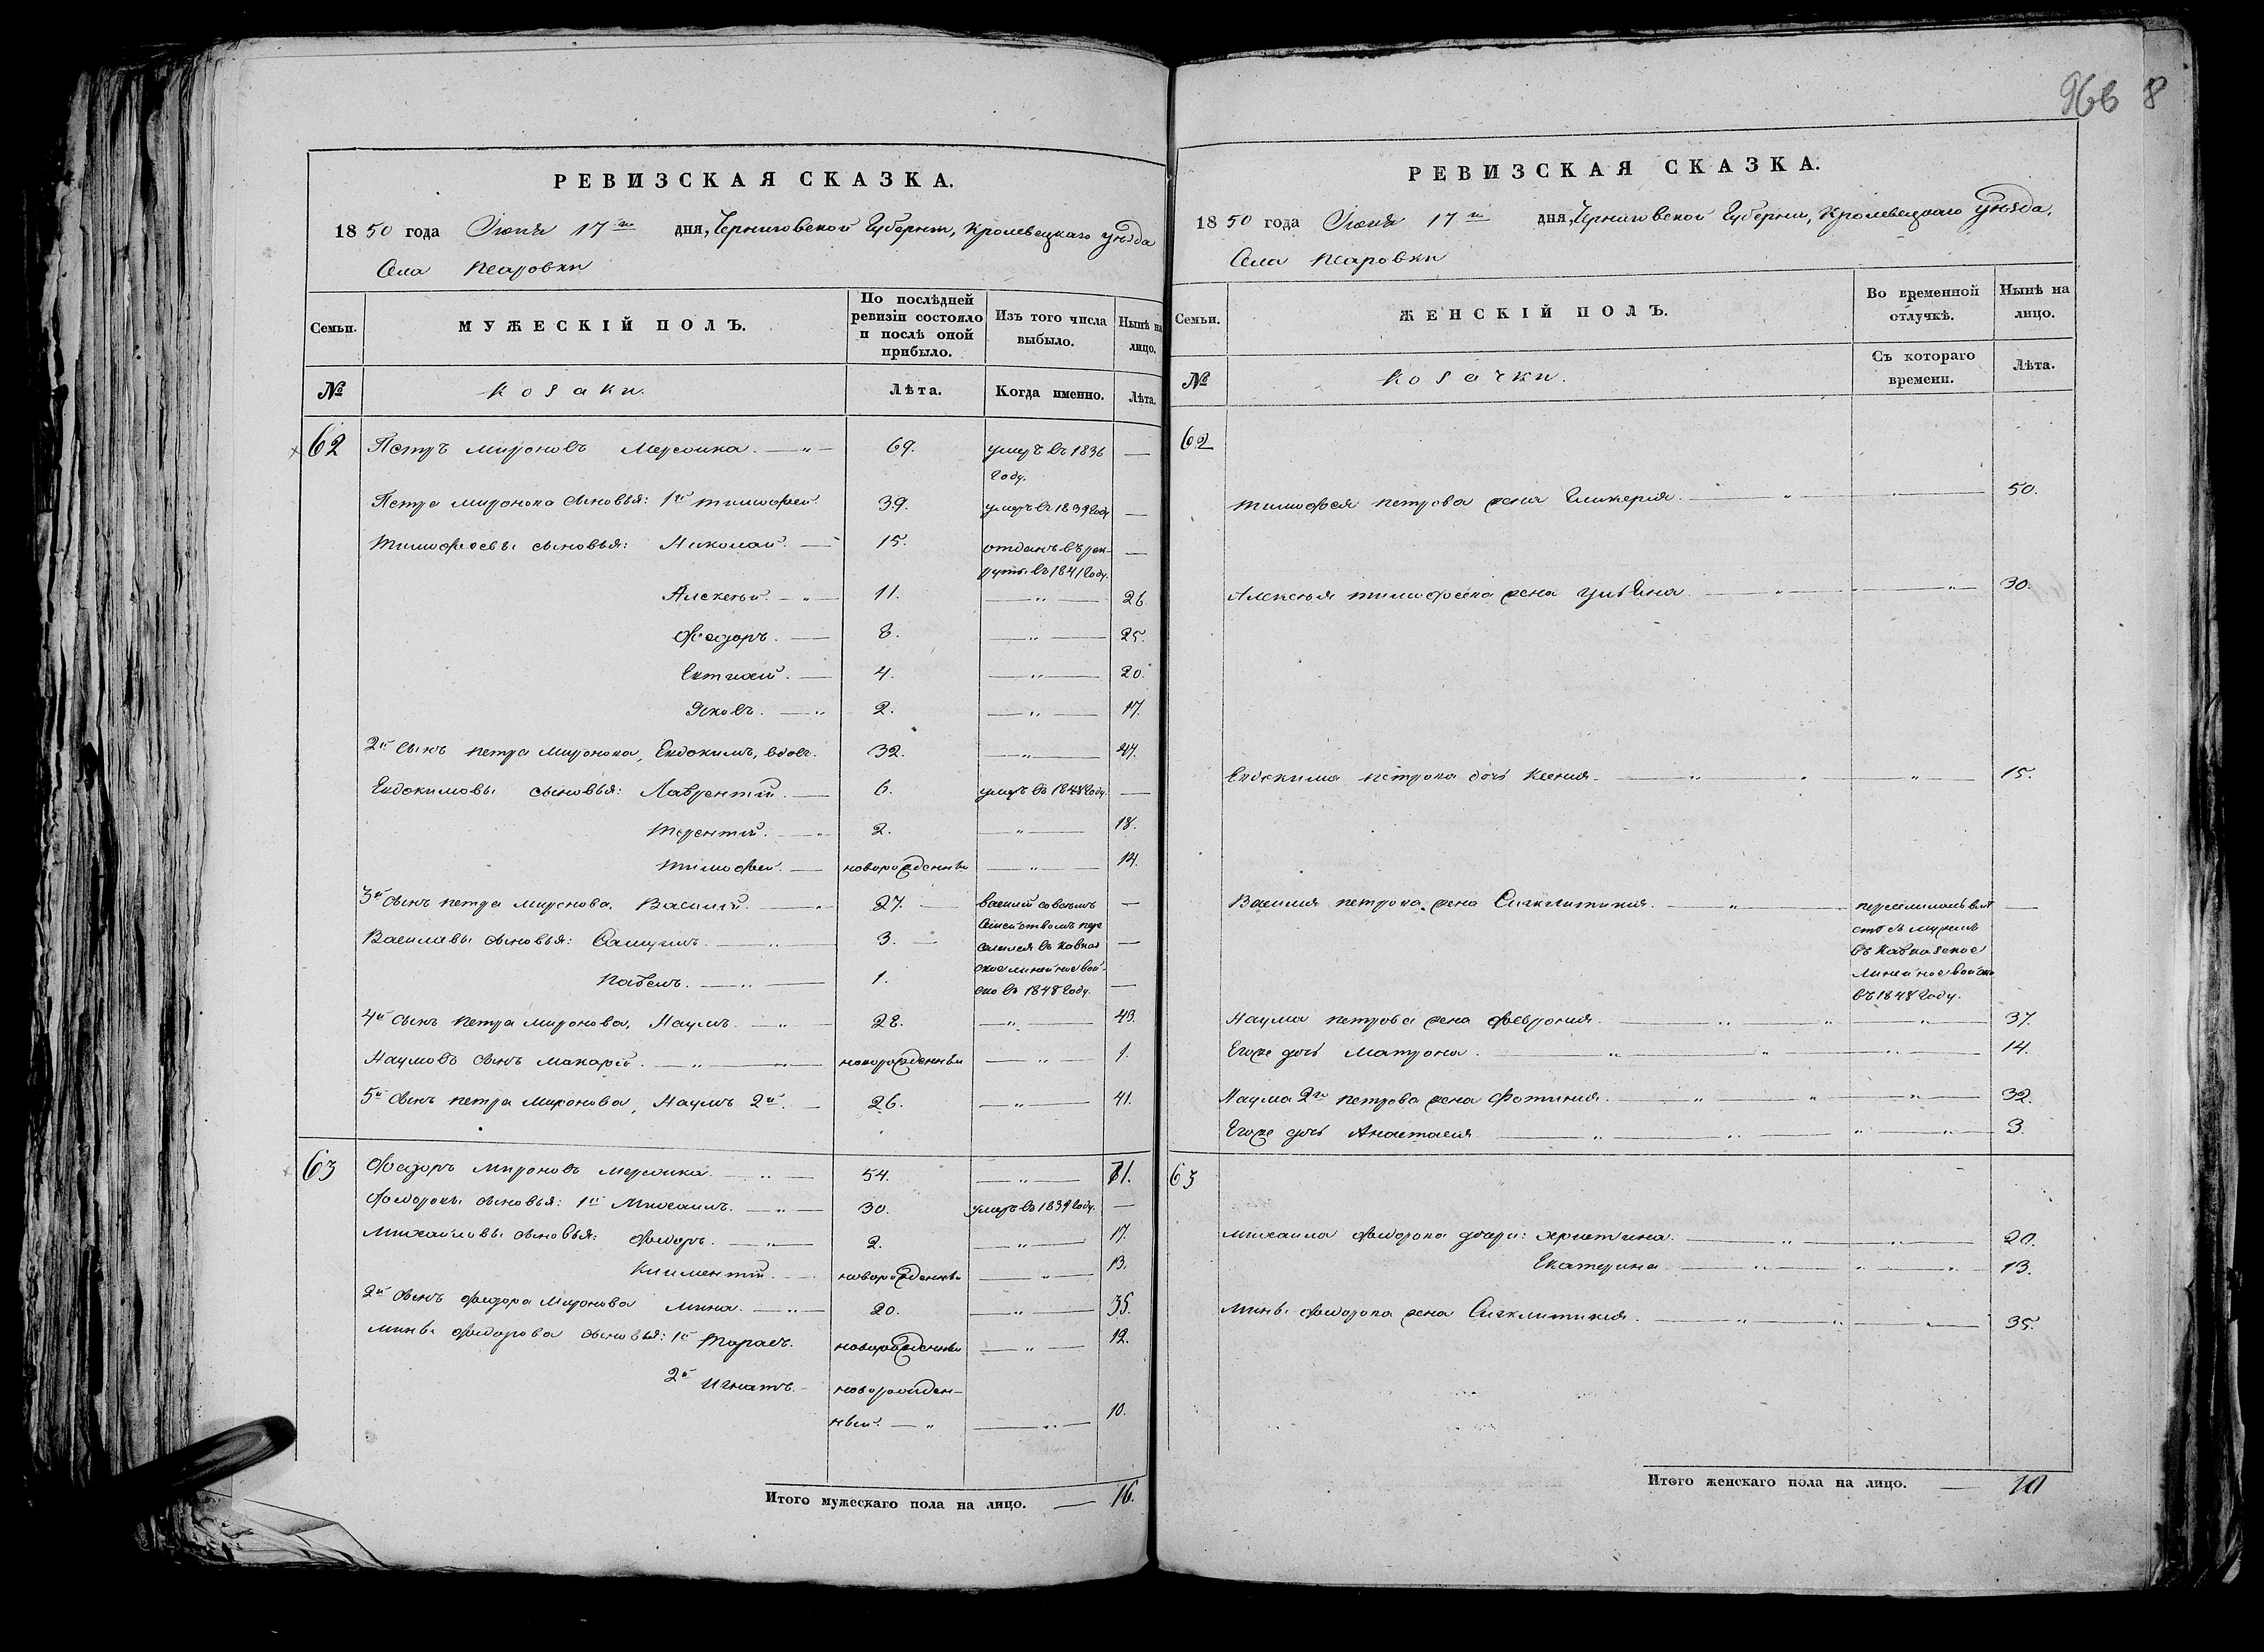 966 8
РЕВИЗСКАЯ СКАЗКА.
1850 года Июня 17го дня, Черниговской Губерніи, Кролевецкаго Уѣзда
Села
Семьи. МУЖЕСКІЙ ПОЛЪ. По послѣдней ревизіи состояло и послѣ оной прибыло. Изъ того числа выбыло. Нынѣ на лицо.
№ Козаки. Лѣта. Когда именно. Лѣта.
62 Петръ Мироновъ 69. умеръ въ 1836 году. —
Петра Миронова сыновья: 1й Тимофей 39. умеръ въ 1839 году —
Тимофеевы сыновья: Николай. — 15. отданъ въ рекруты въ 1841 году. —
Алексѣй. — 11. — " — 26.
Федоръ. — 8. — " — 25.
4. — " — 20.
Яковъ. — 2. — " — 17.
2й сынъ Петра Миронова, Евдокимъ, вдовъ. 32. — " — 47.
Евдокимовы сыновья: Лаврентій. — 6. умеръ въ 1848 году —
Терентій. — 2. — " — 18.
Тимофей. — новорожденный — " — 14.
3й сынъ Петра Миронова, Василій. — 27. — Василій со всемъ семействомъ переселился въ Кавказское линейное войско въ 1848 году. —
Васильевы сыновья: Самуилъ. — 3. — —
Павелъ. — 1. —
4й сынъ Петра Миронова, Наумъ. — 28. — " — 43.
Наумовъ сынъ Макарій. — новорожденный — " — 1.
5й сынъ Петра Миронова, Наумъ 2й. — 26. — " — 41.
63 Федоръ Мироновъ 54. — " — 71.
Федоровы сыновья: 1й Михаилъ. — 30. умеръ въ 1839 году. —
Михайловы сыновья: Федоръ. — 2. — " — 17.
Климентій. — новорожденный — " — 13.
2й сынъ Федора Миронова Мина. — 20. — " — 35.
Мины Федорова сыновья: 1й Тарасъ. новорожденный — " — 12.
2й Игнатъ. — новорожденный. — " — 10.
Итого мужескаго пола на лицо. — 16.
РЕВИЗСКАЯ СКАЗКА.
1850 года Июня 17го дня, Черниговской Губерніи, Кролевецкаго Уѣзда,
Села
Семьи. ЖЕНСКІЙ ПОЛЪ. Во временной отлучкѣ. Нынѣ на лицо.
№ Козачки. Съ котораго времени. Лѣта.
62
Тимофея Петрова жена Гликерия. — " — 50.
Алексѣя Тимофеева жена Ульяна. — " — 30.
Евдокима Петрова дочь Ксения. — " — 15.
Василия Петрова жена Сигклитикия. — " — переселилась вместе съ мужемъ въ Кавказское линейное войско въ 1848 году. —
Наума Петрова жена Феврония. — " — 37.
Егоже дочь Матрона. — " — 14.
Наума 2го Петрова жена Фотиния. — " — 32.
Егоже дочь Анастасия — " — 3.
63
Михаила Федорова дочери: Христина. — " — 20.
Екатерина — " — 13.
Мины Федорова жена Сигклитикия. — " — 35.
Итого женскаго пола на лицо. — 10